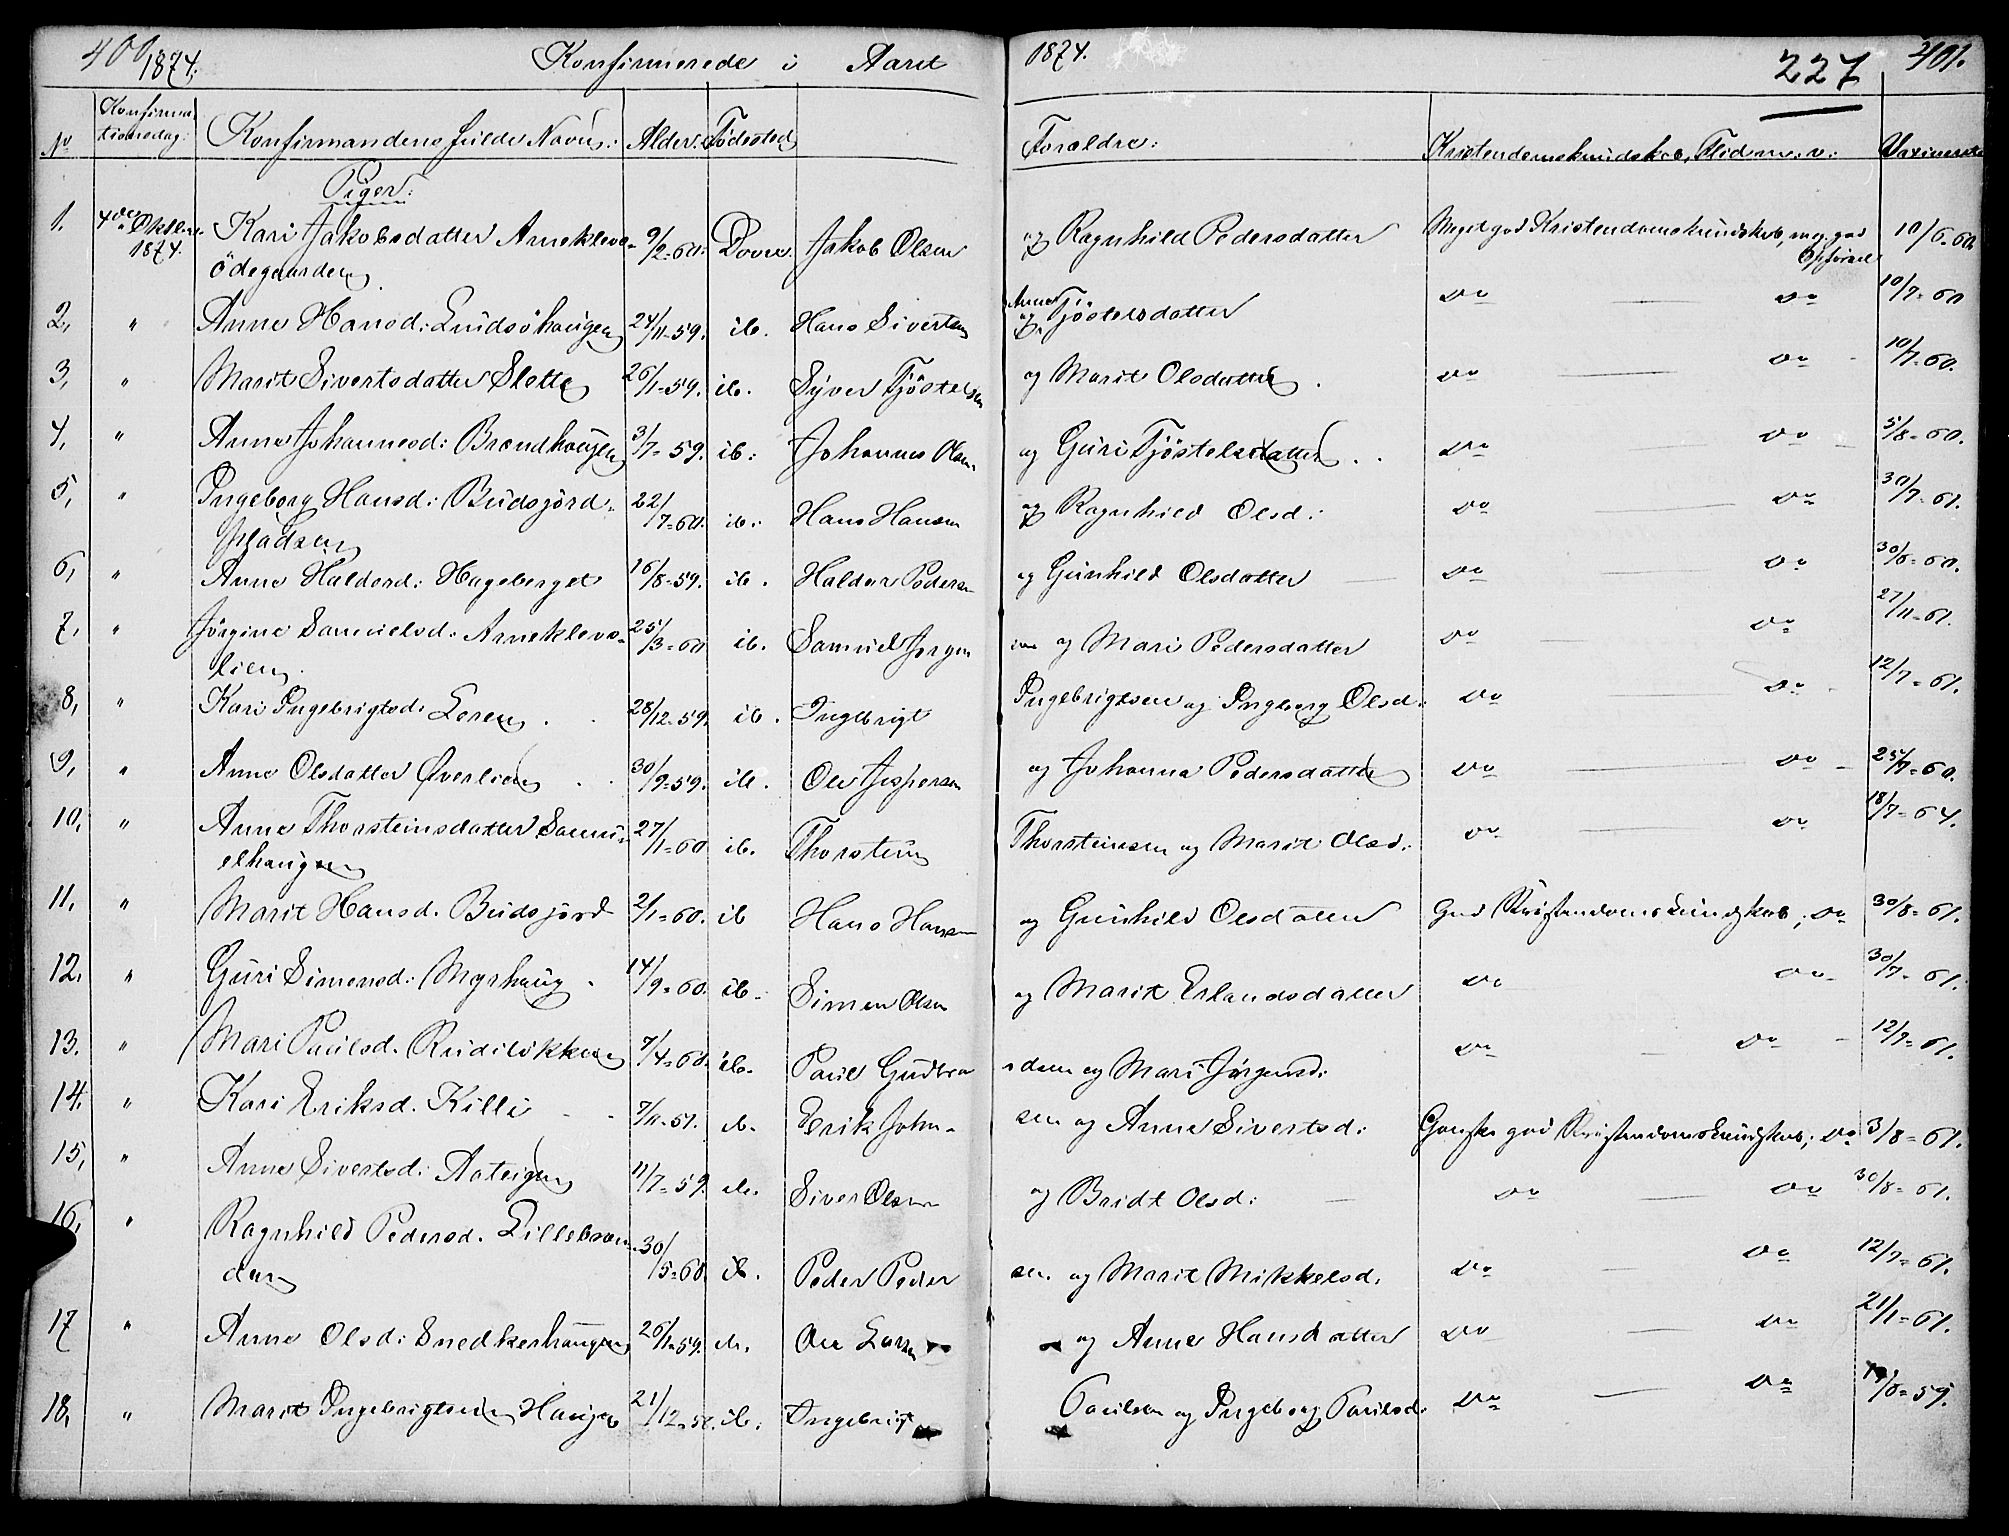 400 1874. Konfirmerede i Aaret 1874. 227 401.
No Konfirma-
tionsdag: Konfirmandens fulde Navn: Alder: Födested Forældre: Kristendomskundskab, Flid m. v: Vaxinerede
Piger:
1. 4de Oktbr. Kari Jakobsdatter Arneklevs- 9/2-60. Dovre. Jakob Olsen og Ragnhild Pedersdatter Meget god Kristendomskundskab, meg. god 10/6-60.
1874. ödegaarden Opförsel
2, " Anne Hansd: Lindsöhaugen 24/11-59. ib. Hans Sivertsen og Anne Tjöstelsdatter do do 10/7-60
3, " Marit Sivertsdatter Slette 26/1-59. ib. Syver Tjöstelsen og Marit Olsdatter. do do 10/7-60.
4, " Anne Johannesd: Brændhaugen 3/7-59. ib: Johannes Olsen og Guri Tjöstelsdatter. do do 5/8-60.
5, " Ingeborg Hansd: Budsjord- 22/7-60. ib: Hans Hansen og Ragnhild Olsd: do do 30/7-61.
pladsen
6, " Anne Haldord: Hageberget 16/8-59. ib. Haldor Pedersen og Gunhild Olsdatter do do 30/6-60.
7, " Jörgine Samuelsd: Arneklevs- 25/3-60 ib. Samuel Jörgen sen og Mari Pedersdatter do do 27/11-61.
lien.
8, " Kari Ingebrigtsd: Loren 28/12-59. ib. Ingebrigt Ingebrigtsen og Ingeborg Olsd: do do 12/7-61.
9, " Anne Olsdatter Øverlien 30/9-59. ib. Ole Jespersen og Johanna Pedersdatter do do 25/7-60.
10, " Anne Thorsteinsdatter Samu- 27/1-60 ib. Thorstein Thorsteinsen og Marit Olsd: do do 18/7-64.
elhaugen
11, " Marit Hansd. Budsjord 2/1-60. ib Hans Hansen og Gunhild Olsdatter God Kristendomskundskab; do 30/8-61.
12, " Guri Simensd: Myrhaug. 14/9-60. ib. Simen Olsen og Marit Erlandsdatter do do 30/7-61.
13. " Mari Paulsd. Rudilökken 7/4-60. ib. Paul Gudbra ndsen og Mari Jörgensd: do do 12/7-61.
14. " Kari Eriksd. Killi 7/11-57. ib. Erik John- sen og Anne Sivertsd: Ganske god Kristendomskundskab; do 3/8-61.
15, " Anne Sivertsd: Aateigen 11/7-59. ib. Siver Olsen og Bridt Olsd: do do 30/8-61.
16, " Ragnhild Pedersd. Lillebræn- 30/5-60. ib. Peder Peder sen og Marit Mikkelsd. do do 12/7-61.
den
17 " Anne Olsd: Snedkerhaugen 26/11-59. ib. Ole Larsen og Anne Hansdatter do do 21/1-61.
18, " Marit Ingebrigtsd. Haugen 21/12-58. ib. Ingebrigt Paulsen og Ingeborg Paulsd: do do /8-59.